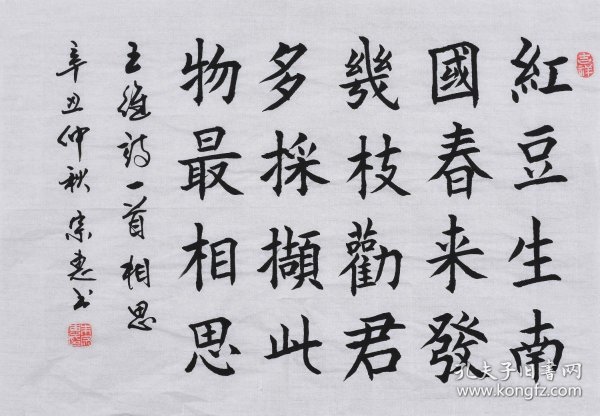 紅豆生南
國春来發
幾枝勸君
多採擷此
物最相思
王維詩一首相思
辛丑仲秋宗惠书
吉祥
孔夫子旧书网
www.kongfz.com